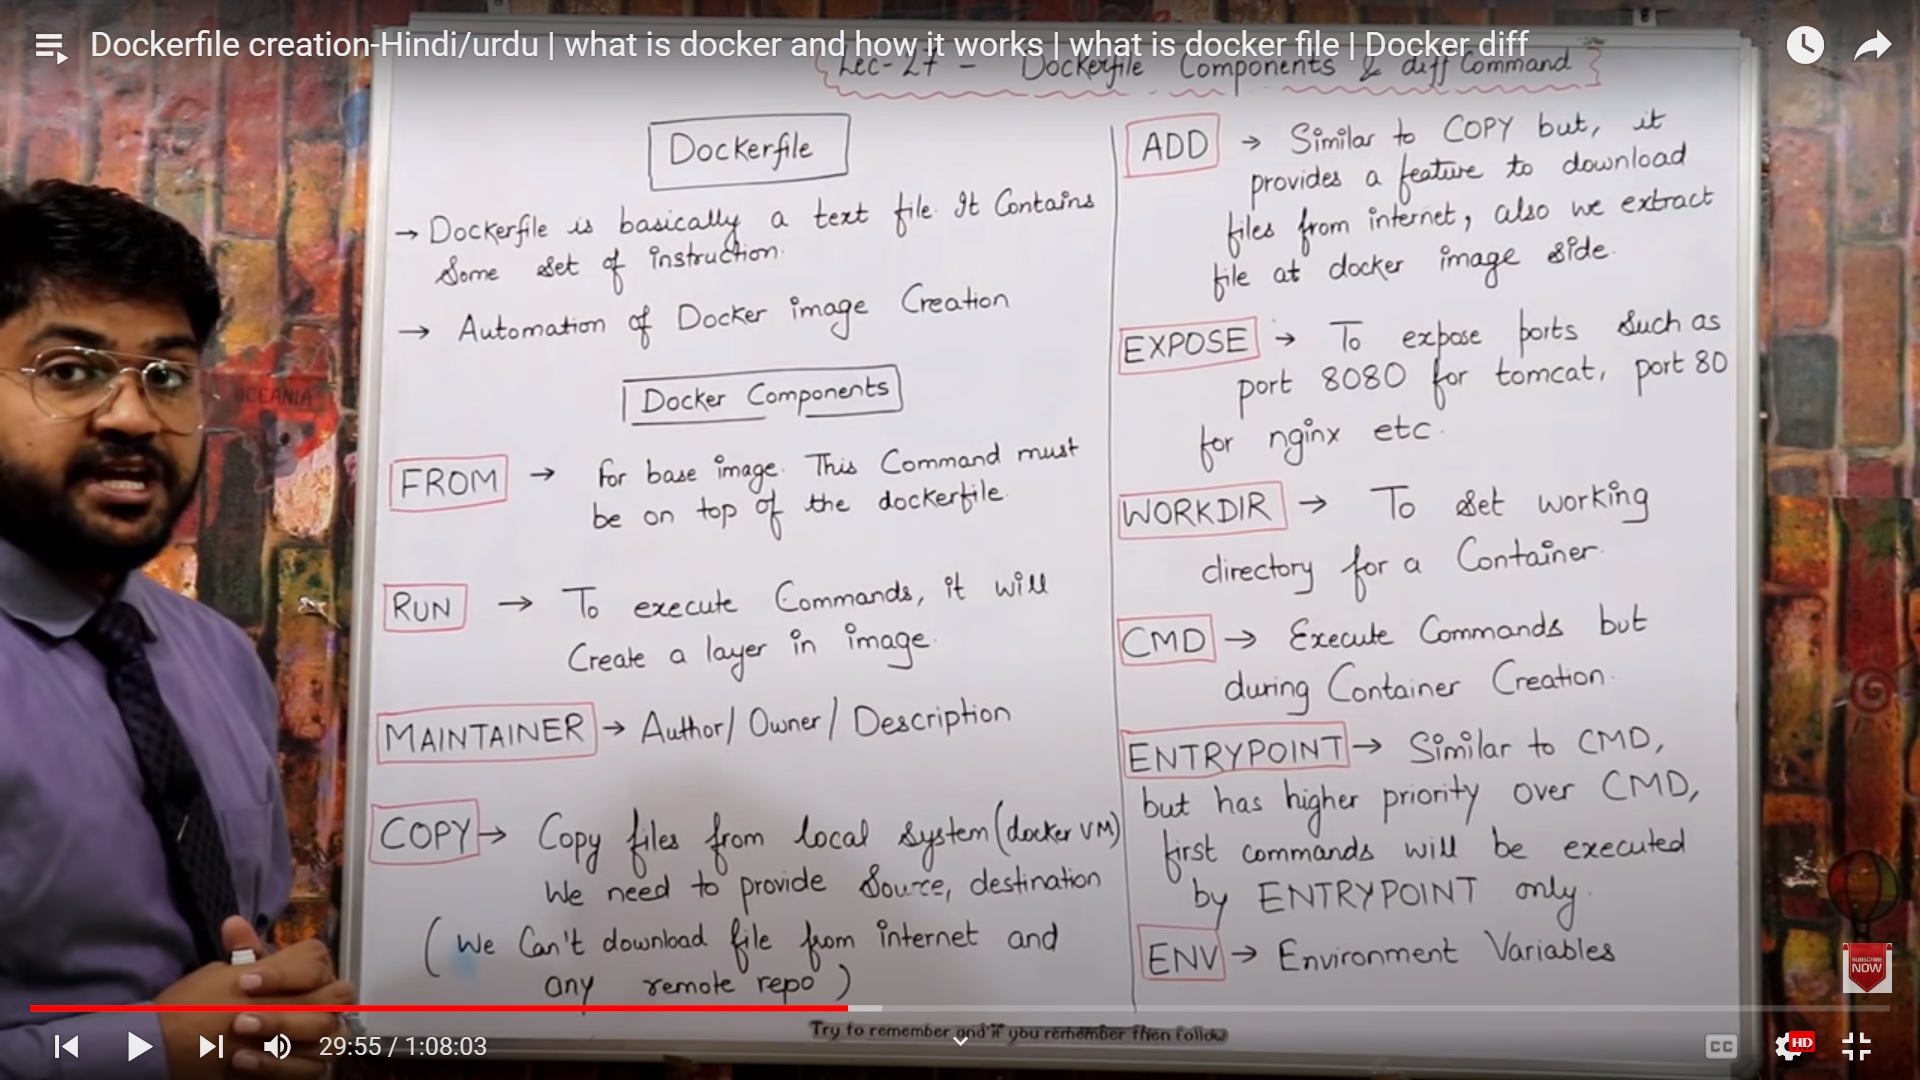 Dockerfile creation-Hindi/urdu | what is docker and how it works | what is docker file | Docker diff
Lec-27 - Dockerfile Components & diff Command
Dockerfile
→ Dockerfile is basically a text file. It Contains
Some set of instruction.
→ Automation of Docker image Creation
Docker Components
FROM → for base image. This Command must
be on top of the dockerfile.
RUN → To execute Commands, it will
Create a layer in image.
MAINTAINER → Author/ Owner/ Description
COPY → Copy files from local system (docker VM)
We need to provide Source, destination
(We Can't download file from internet and
any remote repo)
ADD → Similar to COPY but, it
provides a feature to download
files from internet, also we extract
file at docker image side.
EXPOSE → To expose ports such as
port 8080 for tomcat, port 80
for nginx etc.
WORKDIR → To set working
directory for a Container.
CMD → Execute Commands but
during Container Creation.
ENTRYPOINT → Similar to CMD,
but has higher priority over CMD,
first commands will be executed
by ENTRYPOINT only.
ENV → Environment Variables
OCEANIA
SUBSCRIBE
NOW
Try to remember and if you remember then follow
29:55 / 1:08:03
CC
HD